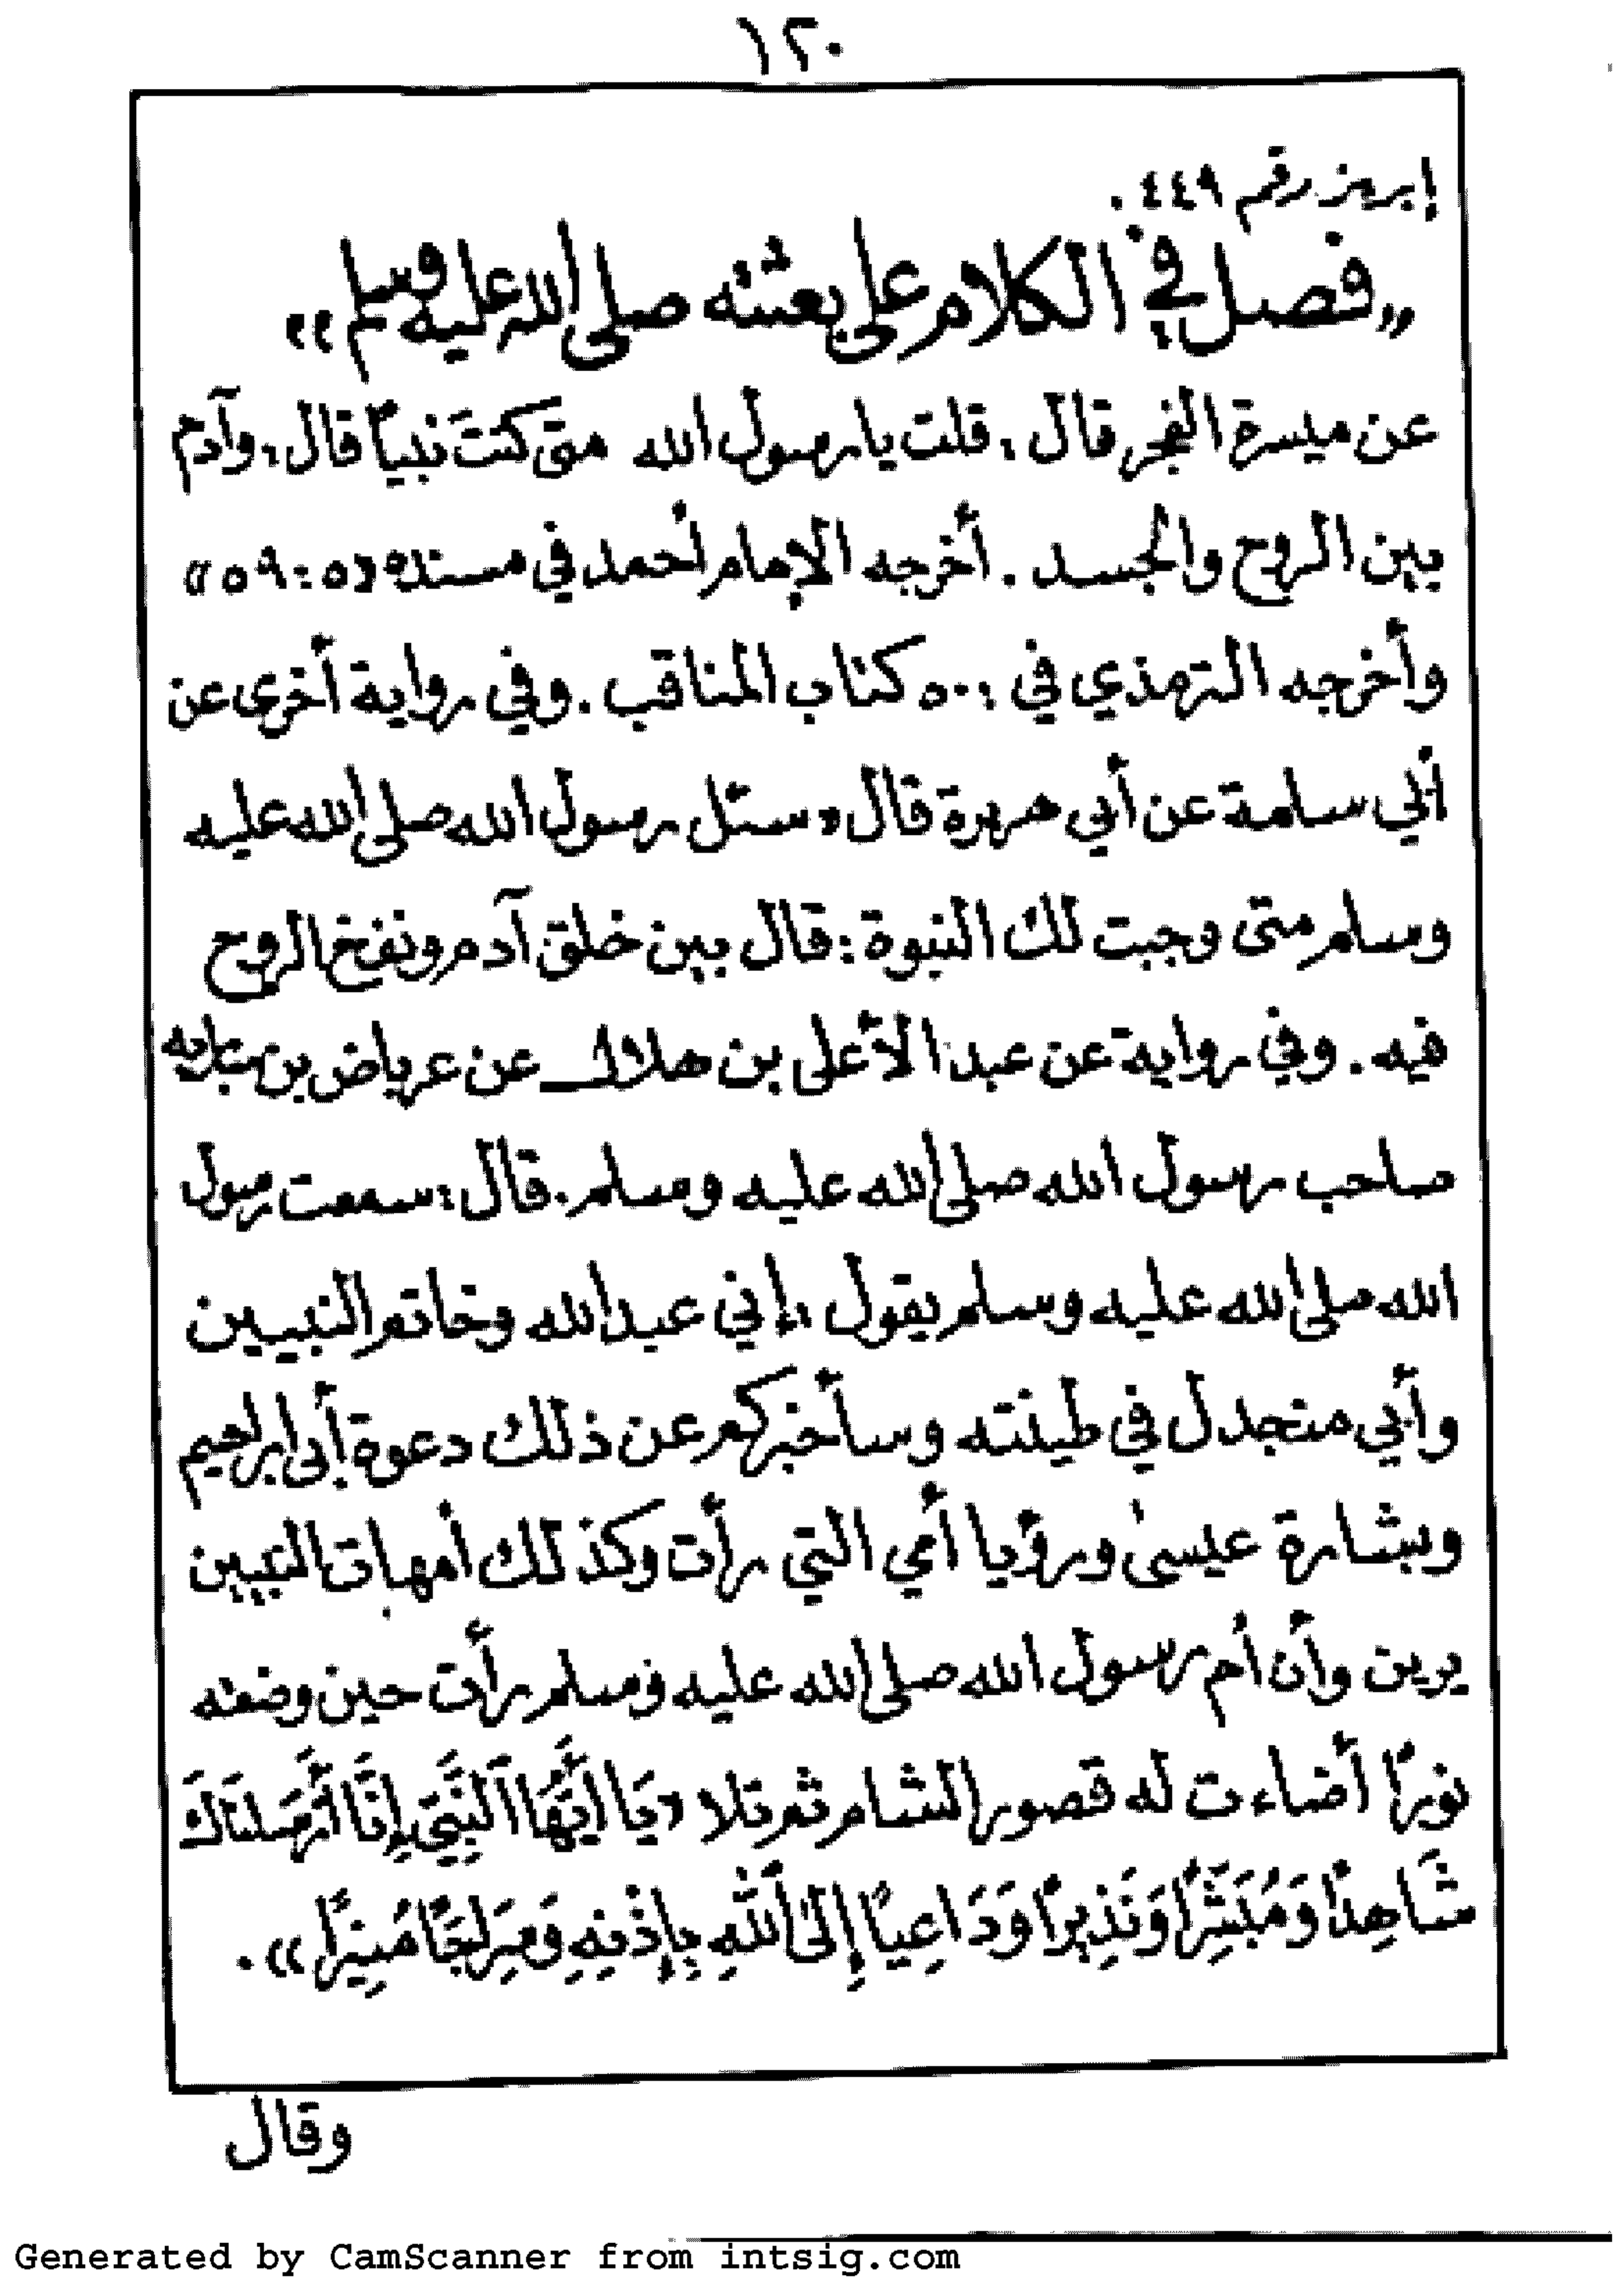 ١٢٠
إبريز رقم ٤٤٩ .
«فصل في الكلام على بعثته صلى الله عليه وسلم»
عن ميسرة الفجر قال : قلت يا رسول الله متى كنتَ نبياً قال : وآدم
بين الروح والجسد . أخرجه الإمام أحمد في مسنده «٥ : ٥٩»
وأخرجه الترمذي في : ٥٠ كتاب المناقب . وفي رواية أخرى عن
أبي سلمة عن أبي هريرة قال : سئل رسول الله صلى الله عليه
وسلم متى وجبت لك النبوة : قال بين خلق آدم ونفخ الروح
فيه . وفي رواية عن عبد الأعلى بن هلال عن عرباض بن سارية
صاحب رسول الله صلى الله عليه وسلم . قال : سمعت رسول
الله صلى الله عليه وسلم يقول : إني عبد الله وخاتم النبيين
وأبي منجدل في طينته وسأخبركم عن ذلك دعوة أبي إبراهيم
وبشارة عيسىٰ ورؤيا أمي التي رأت وكذلك أمهات النبيين
يرين وأن أم رسول الله صلى الله عليه وسلم رأت حين وضعته
نوراً أضاءت له قصور الشام ثم تلا «يَا أَيُّهَا ٱلنَّبِيُّ إِنَّا أَرْسَلْنَاكَ
شَاهِدًا وَمُبَشِّرًا وَنَذِيرًا وَدَاعِيًا إِلَىٰ ٱللَّهِ بِإِذْنِهِ وَسِرَاجًا مُنِيرًا» .
وقال
Generated by CamScanner from intsig.com